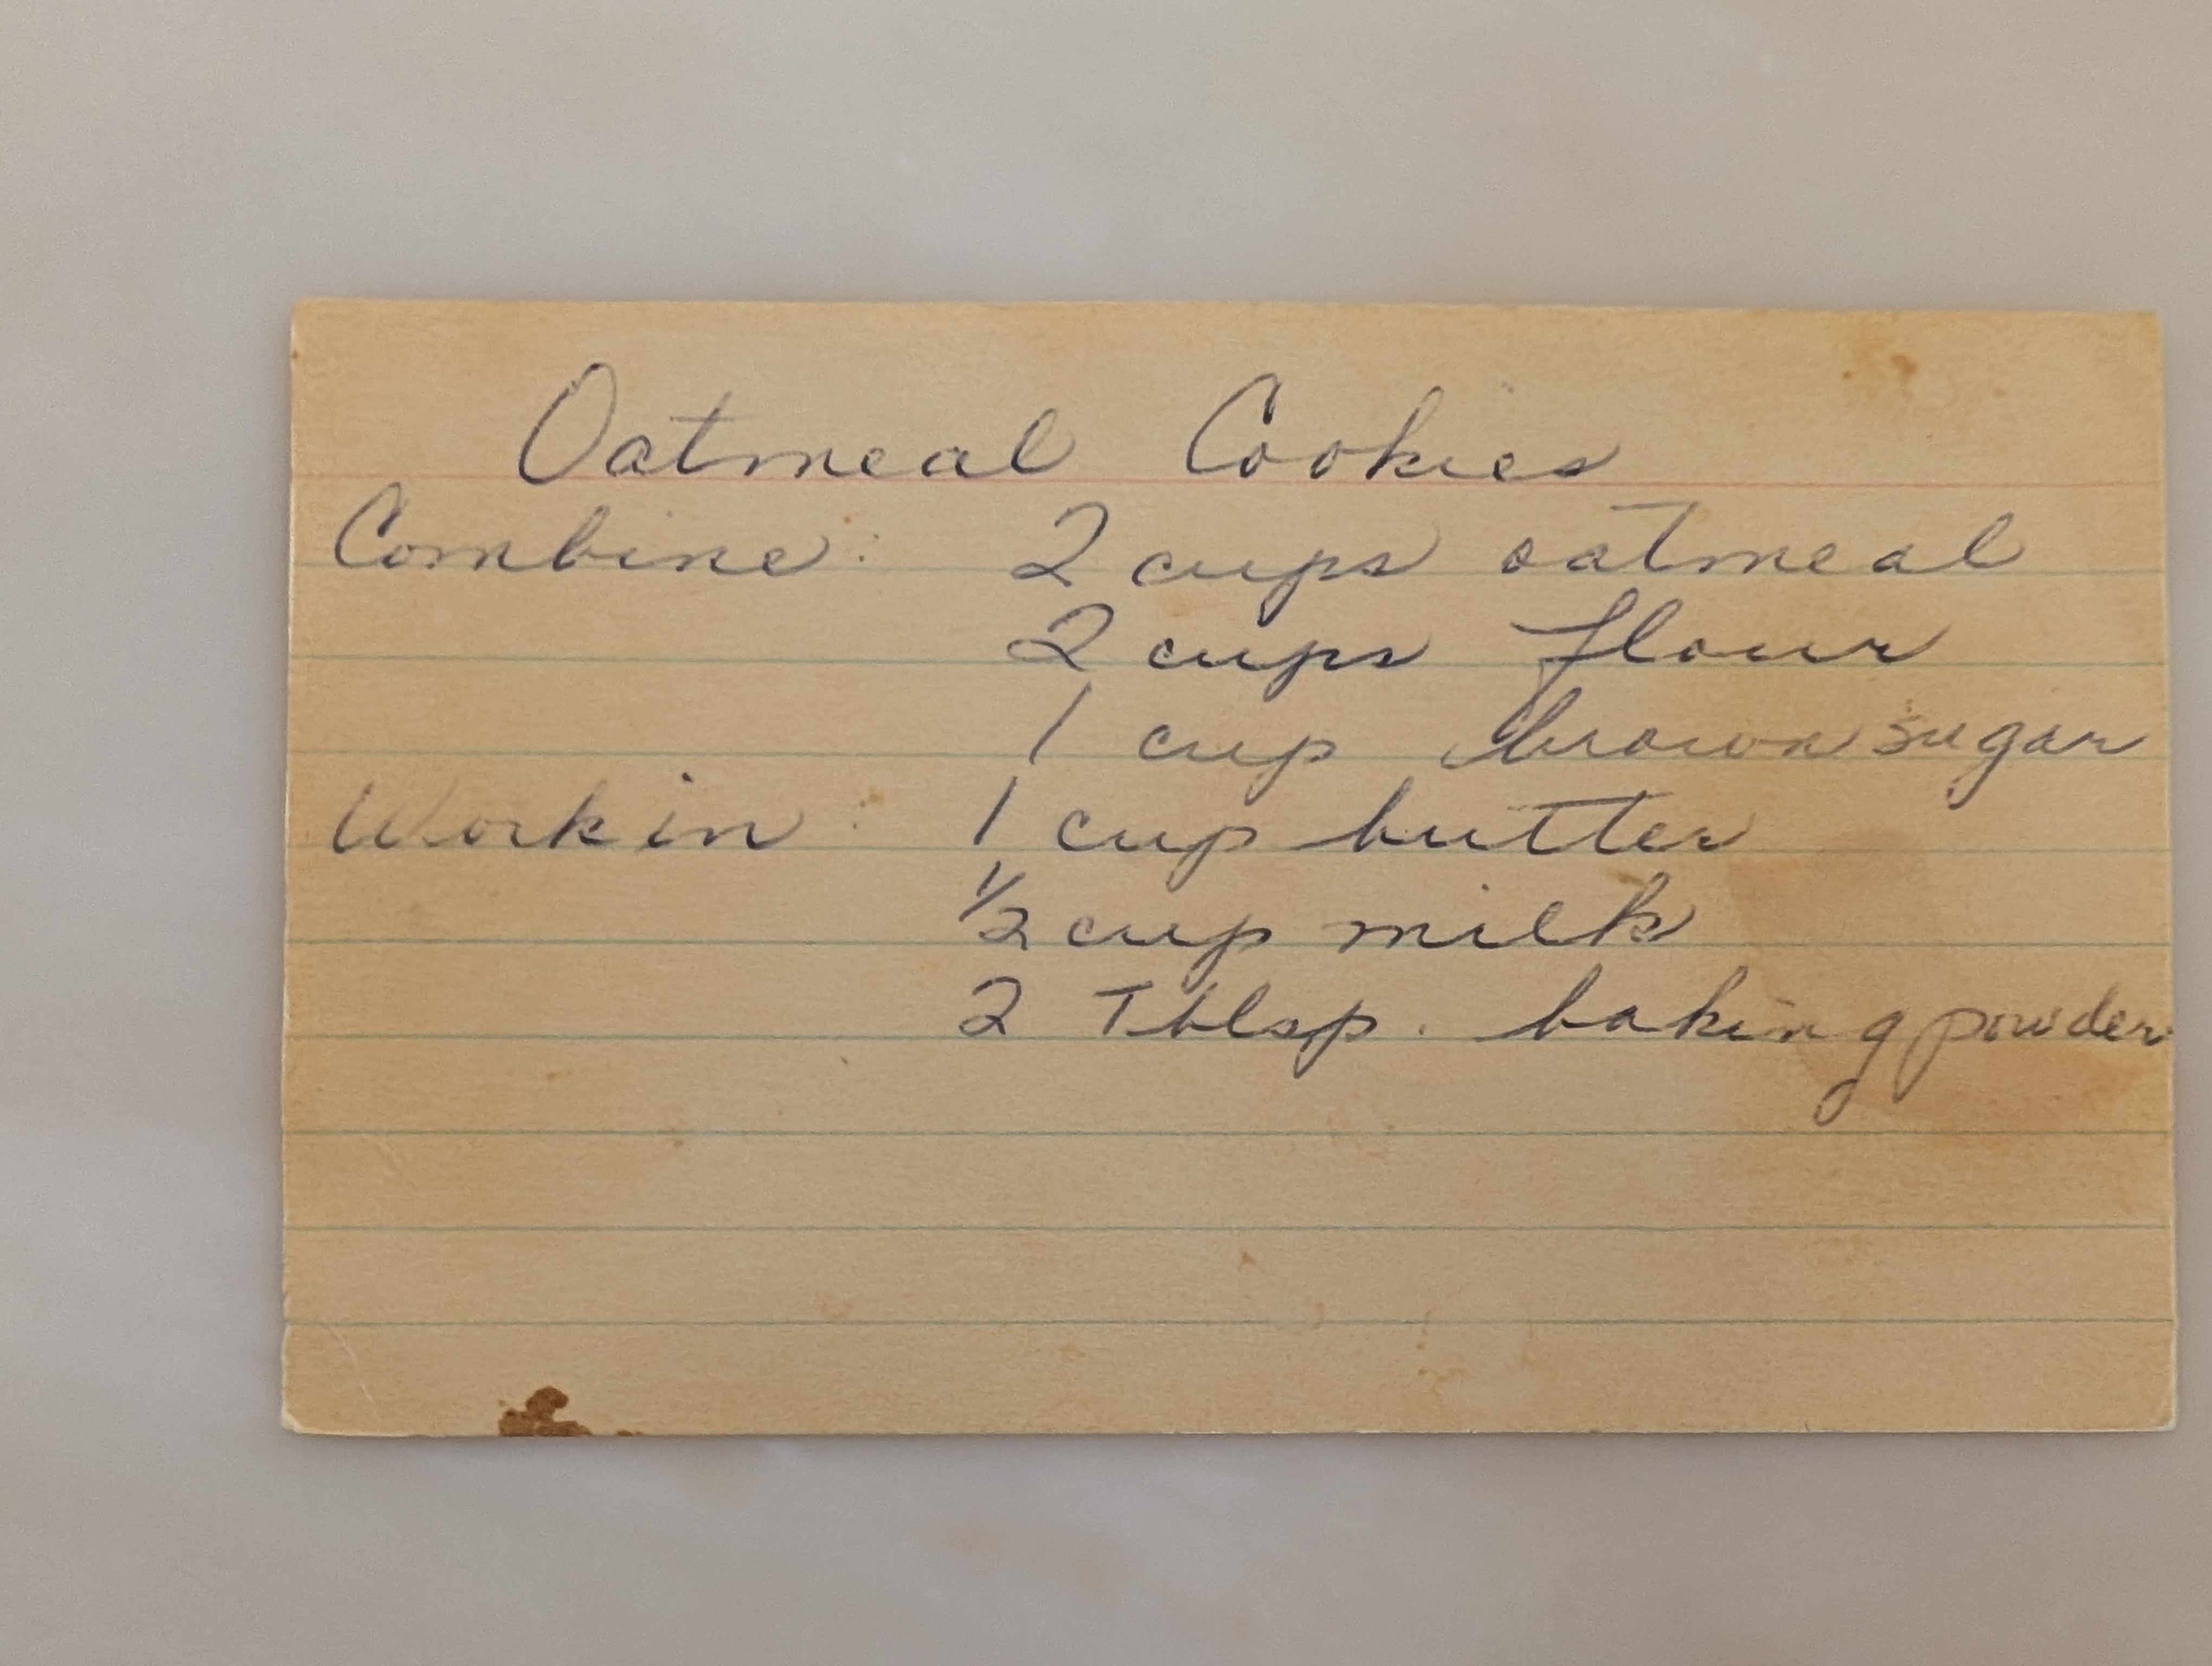 Oatmeal Cookies
Combine: 2 cups oatmeal
2 cups flour
1 cup brown sugar
Work in: 1 cup butter
½ cup milk
2 Tblsp. baking powder